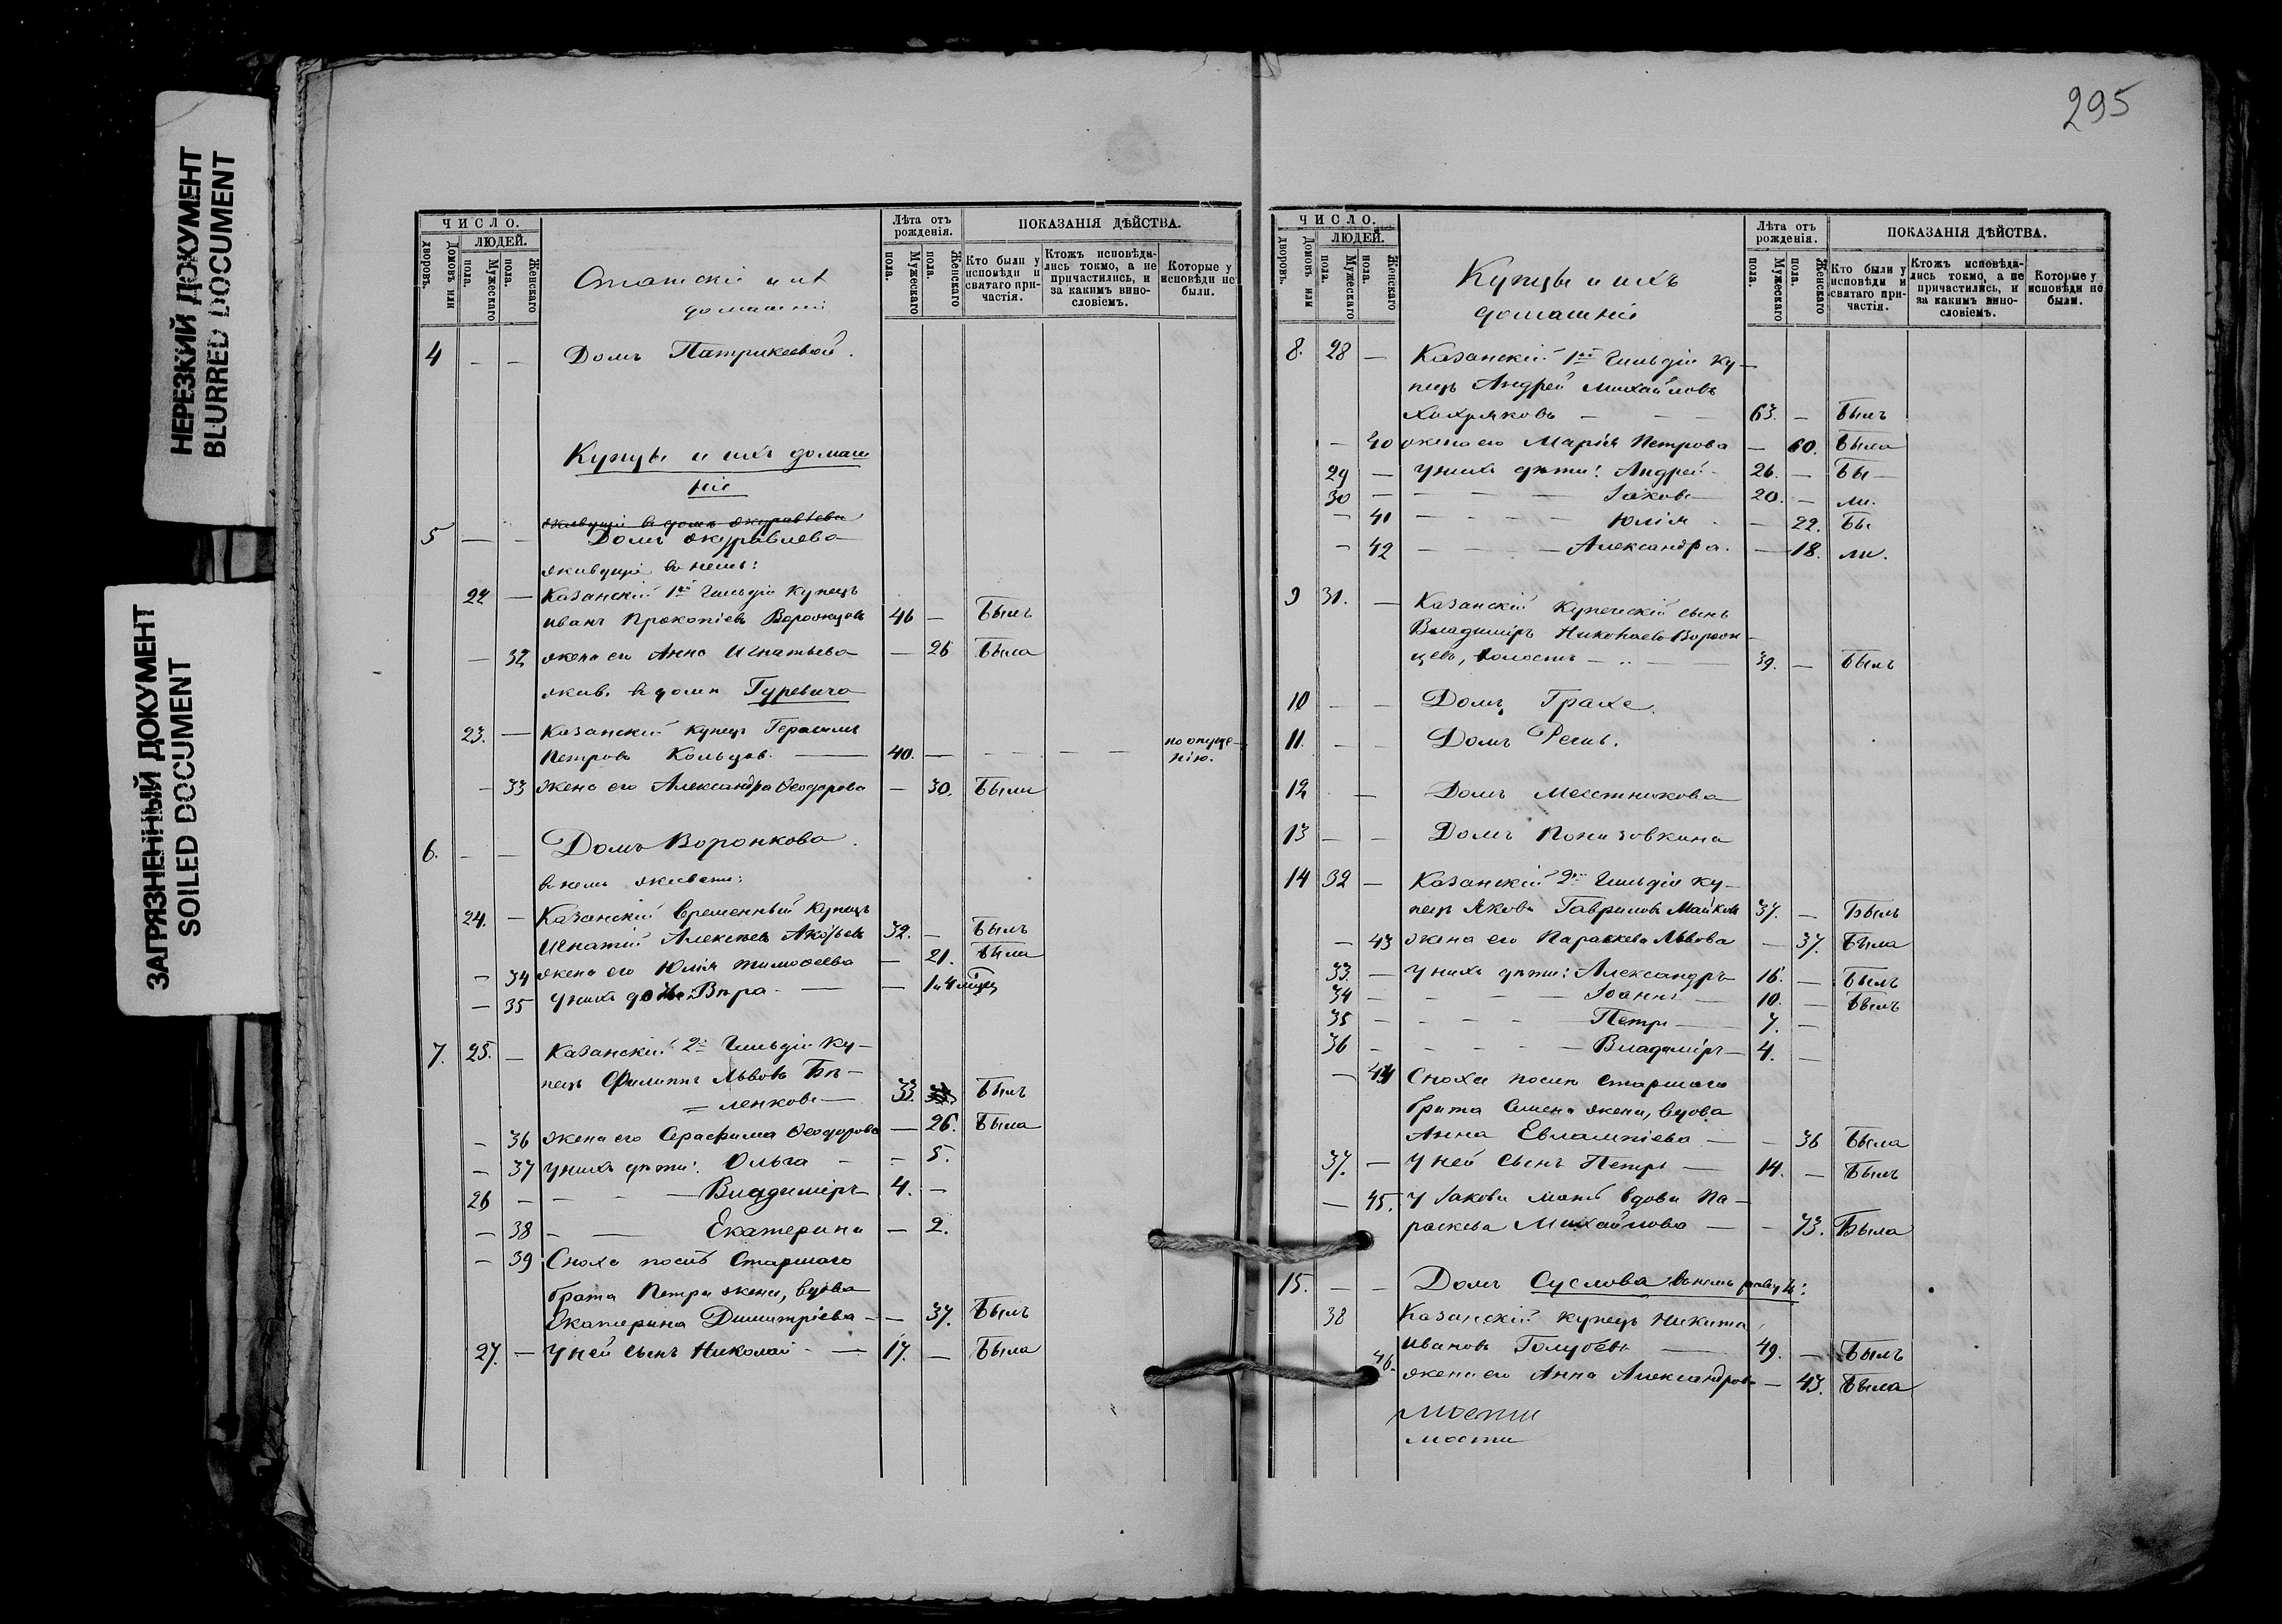 НЕРЕЗКИЙ ДОКУМЕНТ
BLURRED DOCUMENT
ЗАГРЯЗНЕННЫЙ ДОКУМЕНТ
SOILED DOCUMENT
ЧИСЛО.
Домовъ или дворовъ.
ЛЮДЕЙ.
Мужескаго пола.
Женскаго пола.
Статскіе и ихъ
домашніе
Лѣта отъ рожденія.
Мужескаго пола.
Женскаго пола.
ПОКАЗАНІЯ ДѢЙСТВА.
Кто были у исповѣди и святаго причастія.
Ктожъ исповѣда-лись токмо, а не причастились, и за какимъ вино-словіемъ.
Которые у исповѣди не были.
4 — — Домъ Патрикеевой.
Купцы и ихъ домаш
ніе
живущіе въ домѣ Журавлева
5 — — Домъ Журавлева
живущіе въ немъ:
22 — Казанскій 1ой Гильдіи Купецъ
Иванъ Прокопіевъ Воронцовъ 46 — Былъ
— 32 жена его Анна Игнатьева — 26 Была
жив. въ домѣ Гуревича
23. — Казанскій купецъ Герасимъ
Петровъ Кольцов. — 40. — — — — по опуще-
нію.
— 33 жена его Александра Ѳеодорова — 30. Были
6. — — Домъ Воронкова.
въ немъ живетъ:
24. — Казанскій временный Купецъ
Игнатій Алексѣевъ 32. — Былъ
— 34 жена его Юлія Тимоѳеева — 21. Была
— 35 У нихъ дочь Вѣра — — 1 и 4 мѣсяц
7. 25. — Казанскій 2й Гильдіи Ку-
пецъ Филиппъ Львовъ Бѣ-
= ленковъ — 33. Былъ
— 36 жена его Серафима Ѳеодорова — 26. Была
— 37 У нихъ дѣти: Ольга — — 5.
26 — — — Владиміръ 4. —
— 38 — — Екатерина — 2.
— 39 Сноха послѣ Старшаго
брата Петра жена, вдова
Екатерина Димитріева — — 37. Былъ
27. — У ней сынъ Николай — 17. — Была
295
ЧИСЛО.
Домовъ или дворовъ.
ЛЮДЕЙ.
Мужескаго пола.
Женскаго пола.
Купцы и ихъ
домашніе
Лѣта отъ рожденія.
Мужескаго пола.
Женскаго пола.
ПОКАЗАНІЯ ДѢЙСТВА.
Кто были у исповѣди и святаго при-частія.
Ктожъ исповѣда-лись токмо, а не причастились, и за какимъ вино-словіемъ.
Которые у исповѣди не были.
8. 28 — Казанскій 1ой Гильдіи Ку-
пецъ Андрей Михайловъ
Хохряковъ — — — 63. — Былъ
— 40 жена его Марія Петрова — 60. Была
29 — У нихъ дѣти: Андрей — 26. — Бы —
30 — — — — Іаковъ — 20. — ли.
— 41 — — — — Юлія. — 22. Бы
— 42 — — — — Александра. — 18. ли.
9 31. — Казанскій Купеческій сынъ
Владиміръ Николаевъ Ворон-
цевъ, холостъ — — 39. — Былъ
10 — — Домъ Грахе.
11. — — Домъ
12 — Домъ Местникова
13 — — Домъ Понизовкина
14 32 — Казанскій 2й Гильдіи ку-
пецъ Яковъ Гавриловъ Майков 37. — Былъ
— 43 жена его Параскева Львова — 37. Была
33. — У нихъ дѣти: Александръ 16. — Былъ
34 — — — — Іоаннъ — 10. — Былъ
35 — — — — Петръ — 7. —
36 — — — — Владиміръ — 4. —
— 44 Сноха послѣ Старшаго
брата Симена жена, вдова
Анна Евлампіева — — 36 Была
37. — У ней Сынъ Петръ — 14. — Былъ
— 45. У Іакова мать вдова Па-
раскева Михайлова — — 73. Была
15. — — Домъ Суслова въ немъ живутъ:
38 Казанскій купецъ Никита
Ивановъ Голубевъ — 49. — Былъ
46. жена его Анна Александрова — 43. Была
мости
мости